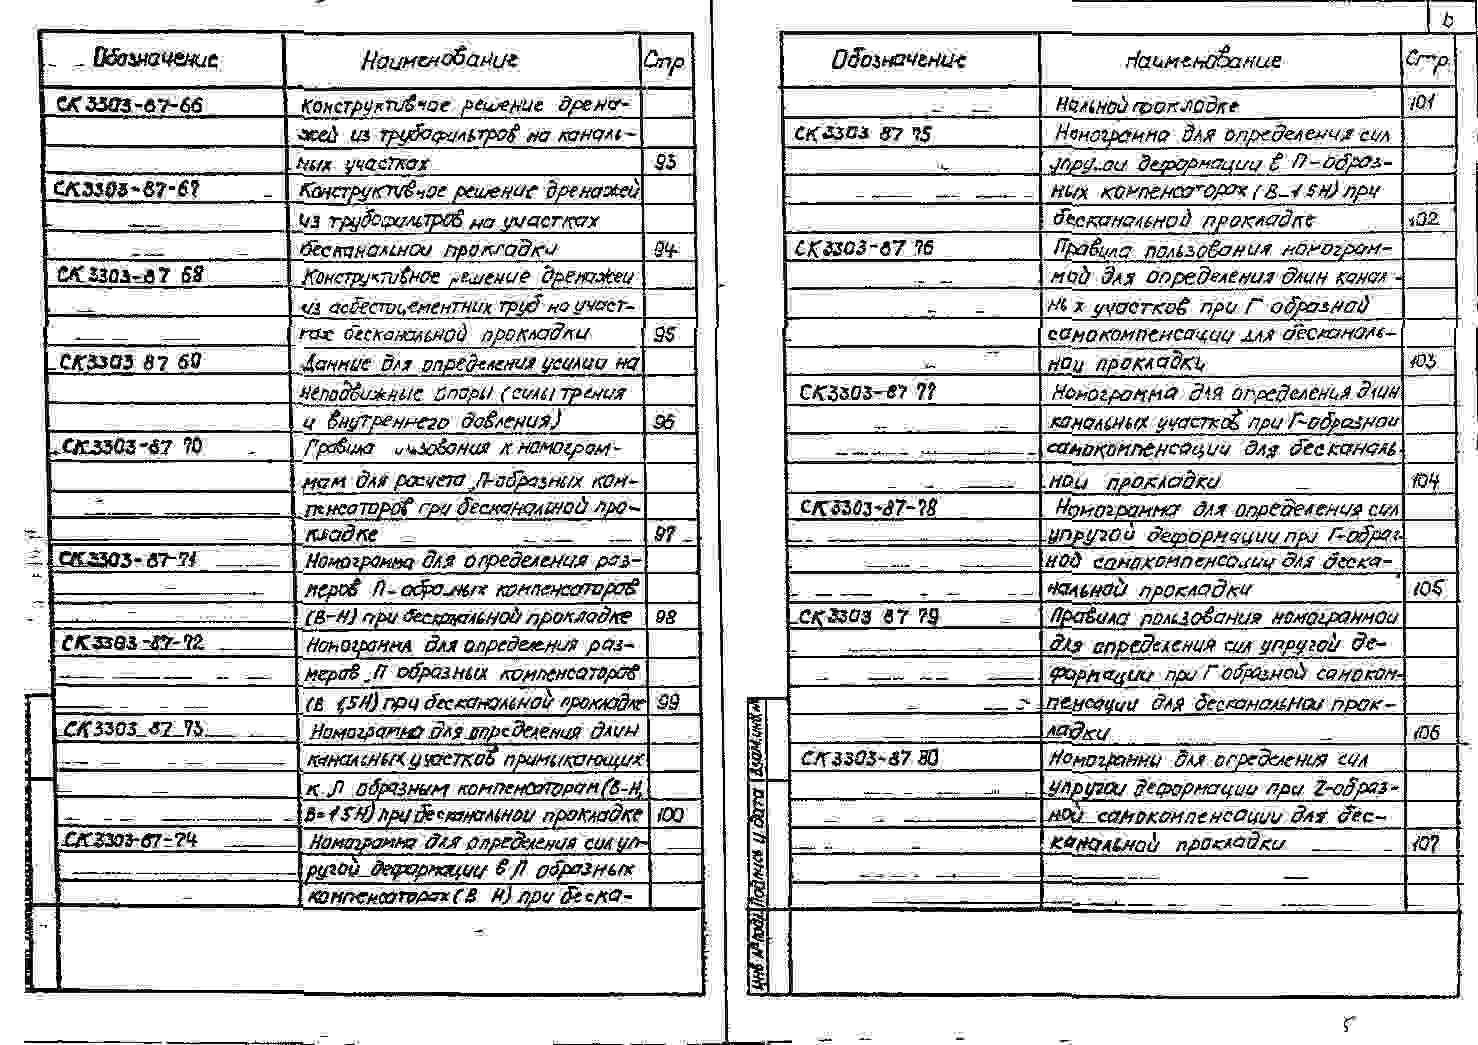 Обозначение Наименование Стр
СК 3303-87-66 Конструктивное решение дрена-
жей из трубофильтров на каналь-
ных участках 93
СК 3303-87-67 Конструктивное решение дренажей
из трубофильтров на участках
бесканальной прокладки 94
СК 3303-87 68 Конструктивное решение дренажей
из асбестоцементных труб на участ-
ках бесканальной прокладки 95
СК 3303 87 69 Данные для определения усилий на
неподвижные опоры (силы трения
и внутреннего давления) 96
СК 3303-87 70 Правила к номограм-
мам для расчета П-образных ком-
пенсаторов при бесканальной про-
кладке 97
СК 3303-87-71 Номограмма для определения раз-
меров П-образных компенсаторов
(В-Н) при бесканальной прокладке 98
СК 3303-87-72 Номограмма для определения раз-
меров П образных компенсаторов
(В 1,5Н) при бесканальной прокладке 99
СК 3303 87 73 Номограмма для определения длин
канальных участков примыкающих
к П образным компенсаторам (В-Н,
В=1 5Н) при бесканальной прокладке 100
СК 3303-87-74 Номограмма для определения сил уп-
ругой деформации в П образных
компенсаторах (В Н) при беска-
6
Обозначение Наименование Стр
нальной прокладке 101
СК 3303 87 75 Номограмма для определения сил
упругой деформации в П-образ-
ных компенсаторах (В-1 5Н) при
бесканальной прокладке 102
СК 3303-87 76 Правила пользования номограм-
мой для определения длин канал-
ных участков при Г образной
самокомпенсации для бесканаль-
ной прокладки 103
СК 3303-87 77 Номограмма для определения длин
канальных участков при Г-образной
самокомпенсации для бесканаль-
ной прокладки 104
СК 3303-87-78 Номограмма для определения сил
упругой деформации при Г-образ-
ной самокомпенсации для беска-
нальной прокладки 105
СК 3303 87 79 Правила пользования номограммой
для определения сил упругой де-
формации при Г образной самоком-
пенсации для бесканальной прок-
ладки 106
СК 3303-87 80 Номограммы для определения сил
упругой деформации при Z-образ-
ной самокомпенсации для бес-
канальной прокладки 107
Инв № подл Подпись и дата Взам. инв №
5